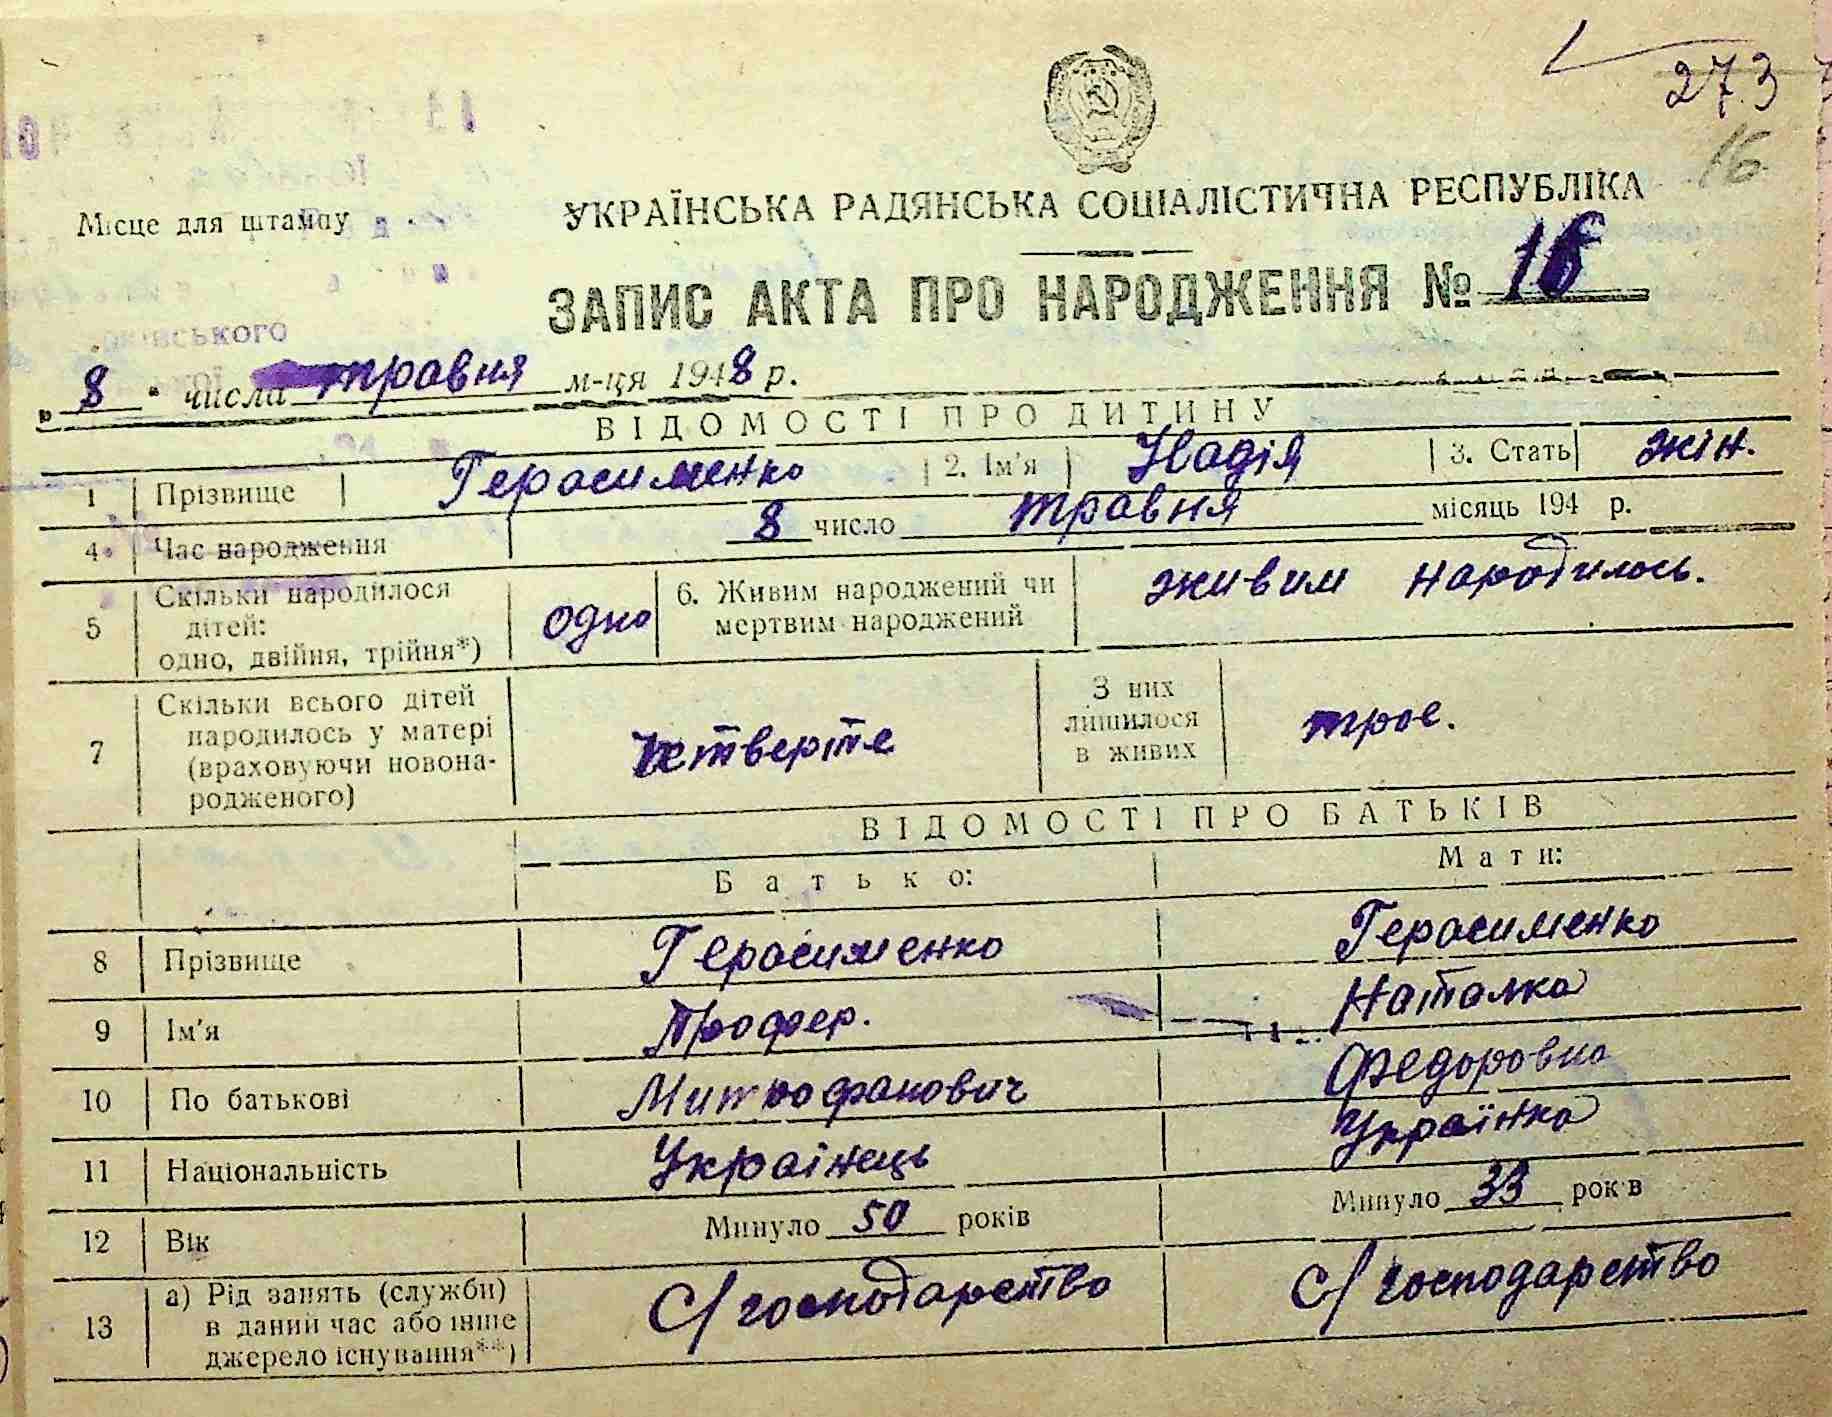 273
16
Місце для штампу
УКРАЇНСЬКА РАДЯНСЬКА СОЦІАЛІСТИЧНА РЕСПУБЛІКА
ЗАПИС АКТА ПРО НАРОДЖЕННЯ № 16
„ 8 " числа травня м-ця 1948 р.
ВІДОМОСТІ ПРО ДИТИНУ
1 Прізвище Герасименко 2. Ім'я Надія 3. Стать жін.
4. Час народження 8 число травня місяць 194 р.
5 Скільки народилося дітей: одно, двійня, трійня*) одно 6. Живим народжений чи мертвим народжений живим народилось.
7 Скільки всього дітей народилось у матері (враховуючи новонародженого) четверте З них лишилося в живих троє.
ВІДОМОСТІ ПРО БАТЬКІВ
Батько: Мати:
8 Прізвище Герасименко Герасименко
9 Ім'я Профер. Наталка
10 По батькові Митрофанович Федоровна
11 Національність Українець Українка
12 Вік Минуло 50 років Минуло 33 рок в
13 а) Рід занять (служби) в даний час або інше джерело існування**) С/господарство С/господарство